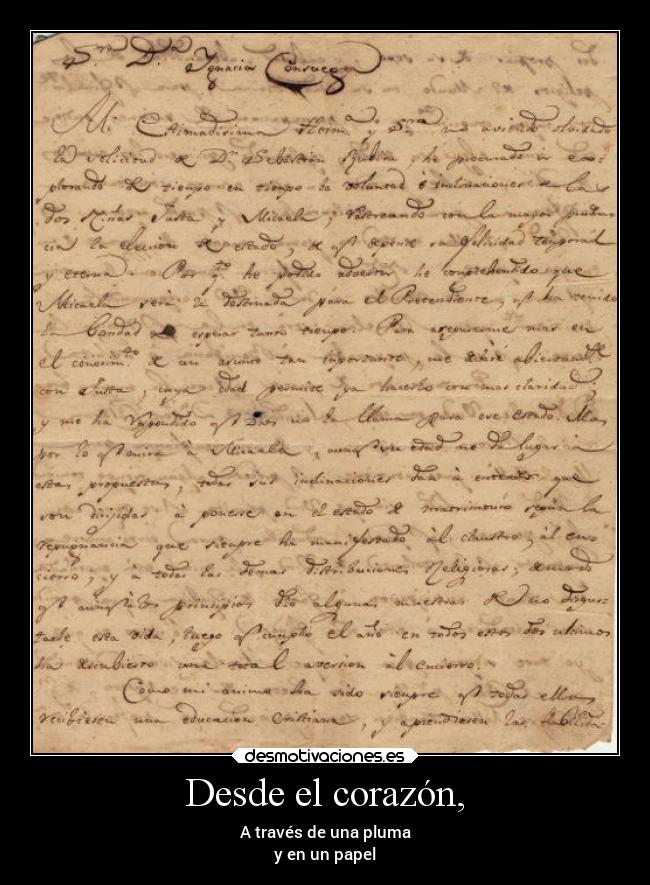 Sra. Da. Ignacia Consuegra
Mi Estimadisima Herma. y Sra. no aviendo olvidado
la solicitud de Dn. Sebastian Rubira, he procurado ir ex-
plorando de tiempo en tiempo la voluntad é inclinaciones de las
dos Niñas Justa y Micaela, rastreando con la mayor pruden-
cia la eleccion de estado, de qe. depende su felicidad temporal
y eterna. Por qto. he podido advertir he comprehendido que
Micaela será la destinada para el Pretendiente, qe. ha tenido
la bondad de esperar tanto tiempo. Para asegurarme mas en
el conocimto. de un asunto tan importante, me abierta
con Justa, cuya edad permite ya hacerlo con mas claridad;
y me ha respondido qe. Dios no la llama para ese estado. Mas
por lo qe. mira à Micaela, aunqe. su edad no da lugar à
estas propuestas, todas sus inclinaciones dan à entender que
son dirijidas à ponerse en el estado de matrimonio segun la
repugnancia que siempre ha manifestado àl claustro, àl en-
cierro, y à todas las demas distribuciones Religiosas; de modo
qe. aunqe. à los principios dio algunas muestras de no disgus-
tarle esta vida, luego qe. cumplió el año en todos estos dos ultimos
ha descubierto una total aversion àl encierro.
Como mi animo ha sido siempre qe. todas ellas
recibiesen una educacion Cristiana, y aprendiesen las habilida-
desmotivaciones.es
Desde el corazón,
A través de una pluma
y en un papel